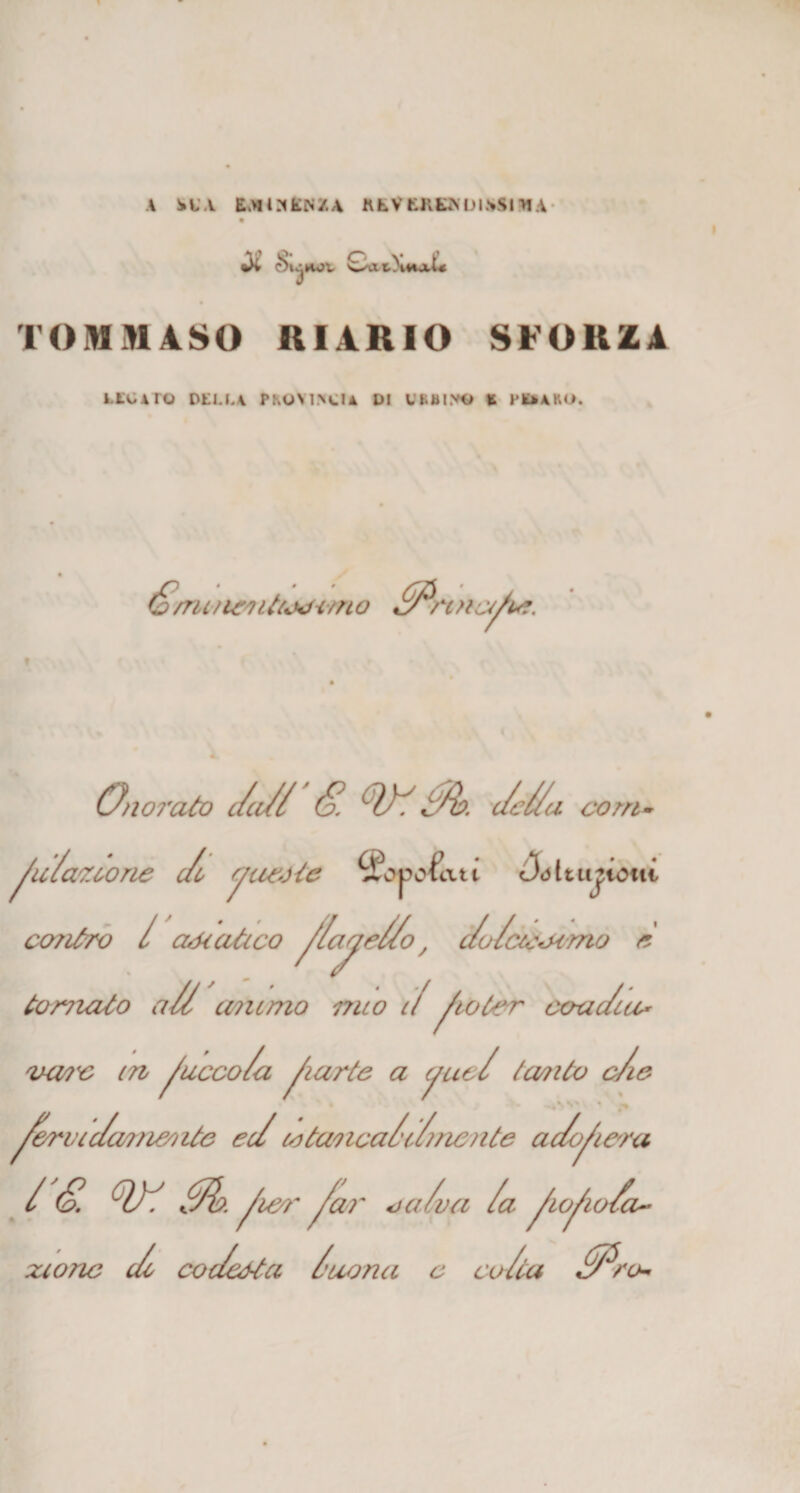 A SUA EMINENZA REVERENDISSIMA
Il Signor Cardinale
TOMMASO RIARIO SFORZA
LEGATO DELLA PROVINCIA DI URBINO E PESARO.
Eminentissimo Principe.
Onorato dall' E. V. R. della com-
pilazione di queste Popolari Istruzioni
contro l'asiatico flagello, dolcissimo è
tornato all'animo mio il poter coadiu-
vare in piccola parte a quel tanto che
fervidamente ed istancabilmente adopera
l'E. V. R. per far salva la popola-
zione di codesta buona e colta Pro-